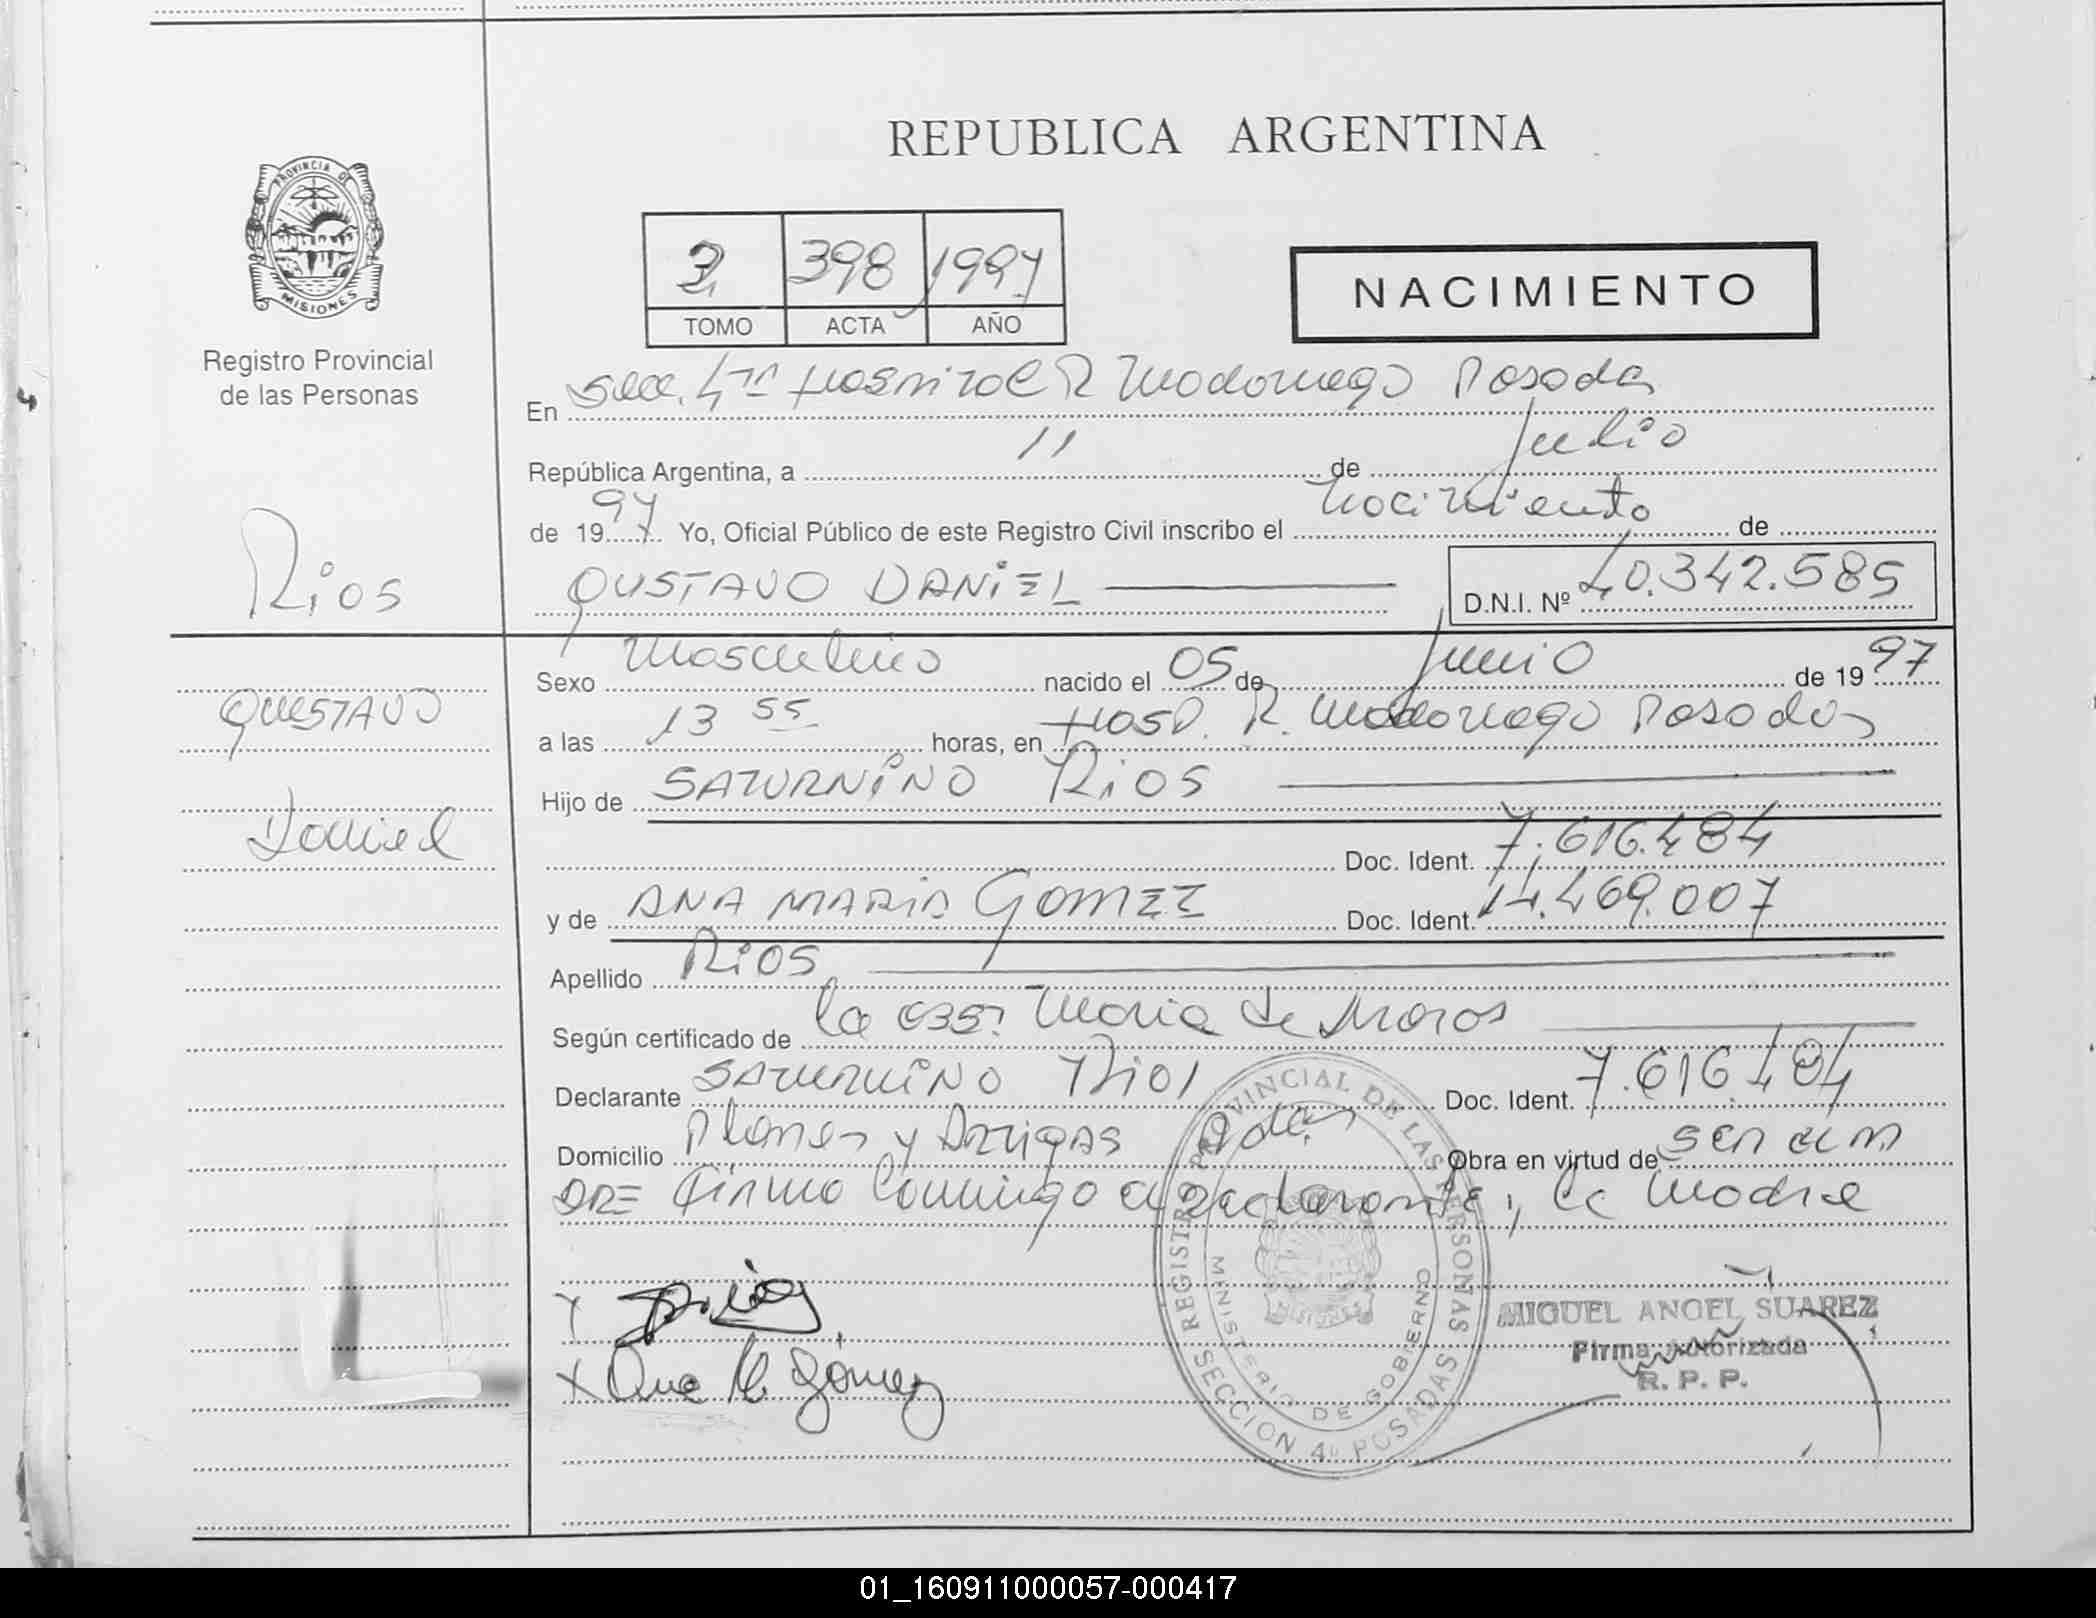 REPUBLICA ARGENTINA
PROVINCIA DE
MISIONES
Registro Provincial
de las Personas
398 1997
TOMO ACTA AÑO
NACIMIENTO
En Secc. 4ta Hospital R Madariaga Posadas
República Argentina, a 11 de Julio
de 1997 Yo, Oficial Público de este Registro Civil inscribo el nacimiento de
GUSTAVO DANIEL D.N.I. Nº 40.342.585
Rios
Gustavo
Daniel
Sexo Masculino nacido el 05 de Junio de 1997
a las 13 55 horas, en Hosp. R. Madariaga Posadas
Hijo de SATURNINO RIOS
Doc. Ident. 7.616.484
y de ANA MARIA GOMEZ Doc. Ident. 14.469.007
Apellido RIOS
Según certificado de la Maria de
Declarante SATURNINO RIOS Doc. Ident. 7.616.484
Domicilio y Artigas Pdas Obra en virtud de ser el pa
DRE Firma conmigo el declarante, la madre
Y Rios
X Ana M. Gómez
REGISTRO PROVINCIAL DE LAS PERSONAS
MINISTERIO DE GOBIERNO
SECCION 4ª POSADAS
MIGUEL ANGEL SUAREZ
Firma Autorizada
R. P. P.
01_160911000057-000417